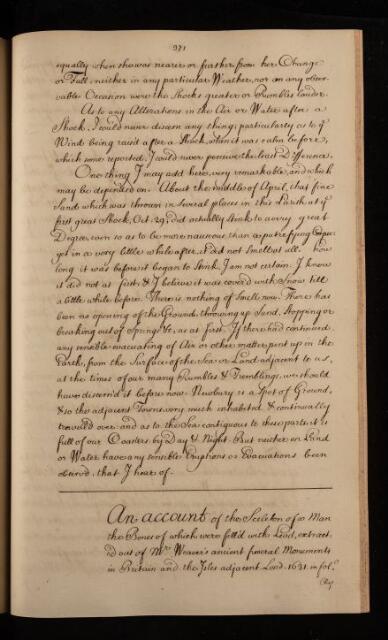 371
equally when she was nearer or farther from her Change
or Full neither in any particular Weather, nor on any obser-
vable Occasion were the Shocks greater or Rumbles louder.
As to any Alterations in the Air or Water after a
Shock, I could never discern any thing; particularly as to ye
Wind being rais'd after a Shock when it was calm before,
which some reported, I could never perceive the least Difference.
One thing I may add here, very remarkable, and which
may be depended on. About the middle of April, that fine
Sand which was thrown in several places in this Parish at ye
first great Shock, Oct. 29, did actually stink to a very great
Degree, even so as to be more nauseous than a putrefying
yet in a very little while after, it did not smell at all. how
long it was before it began to Stink, I am not certain. I know
it did not at first, & I believe it was cover'd with Snow till
a little while before. There is nothing of smell now. There has
been no opening of the Ground, throwing up Sand, Stopping or
breaking out of Springs &c, as at first. If there had continued
any sensible evacuating of Air or other matter pent up in the
Earth, from the Surface of the Sea or Land adjacent to us,
at the times of our many Rumbles & Tremblings, we should
have discern'd it before now. Newbury is a Spot of Ground,
& so the adjacent Towns very much inhabited & continually
travel'd over: and as to the Sea contiguous to these parts it is
full of our Coasters by Day & Night. But neither on Land
or Water have any sensible Eruptions or Evacuations been
observ'd, that I hear of.
An account of the Sceleton of a Man
the Bones of which were fill'd with Lead, extract-
ed out of Mr. Weaver's ancient funeral Monuments
in Britain and the Isles adjacent Lond. 1631. in fol.